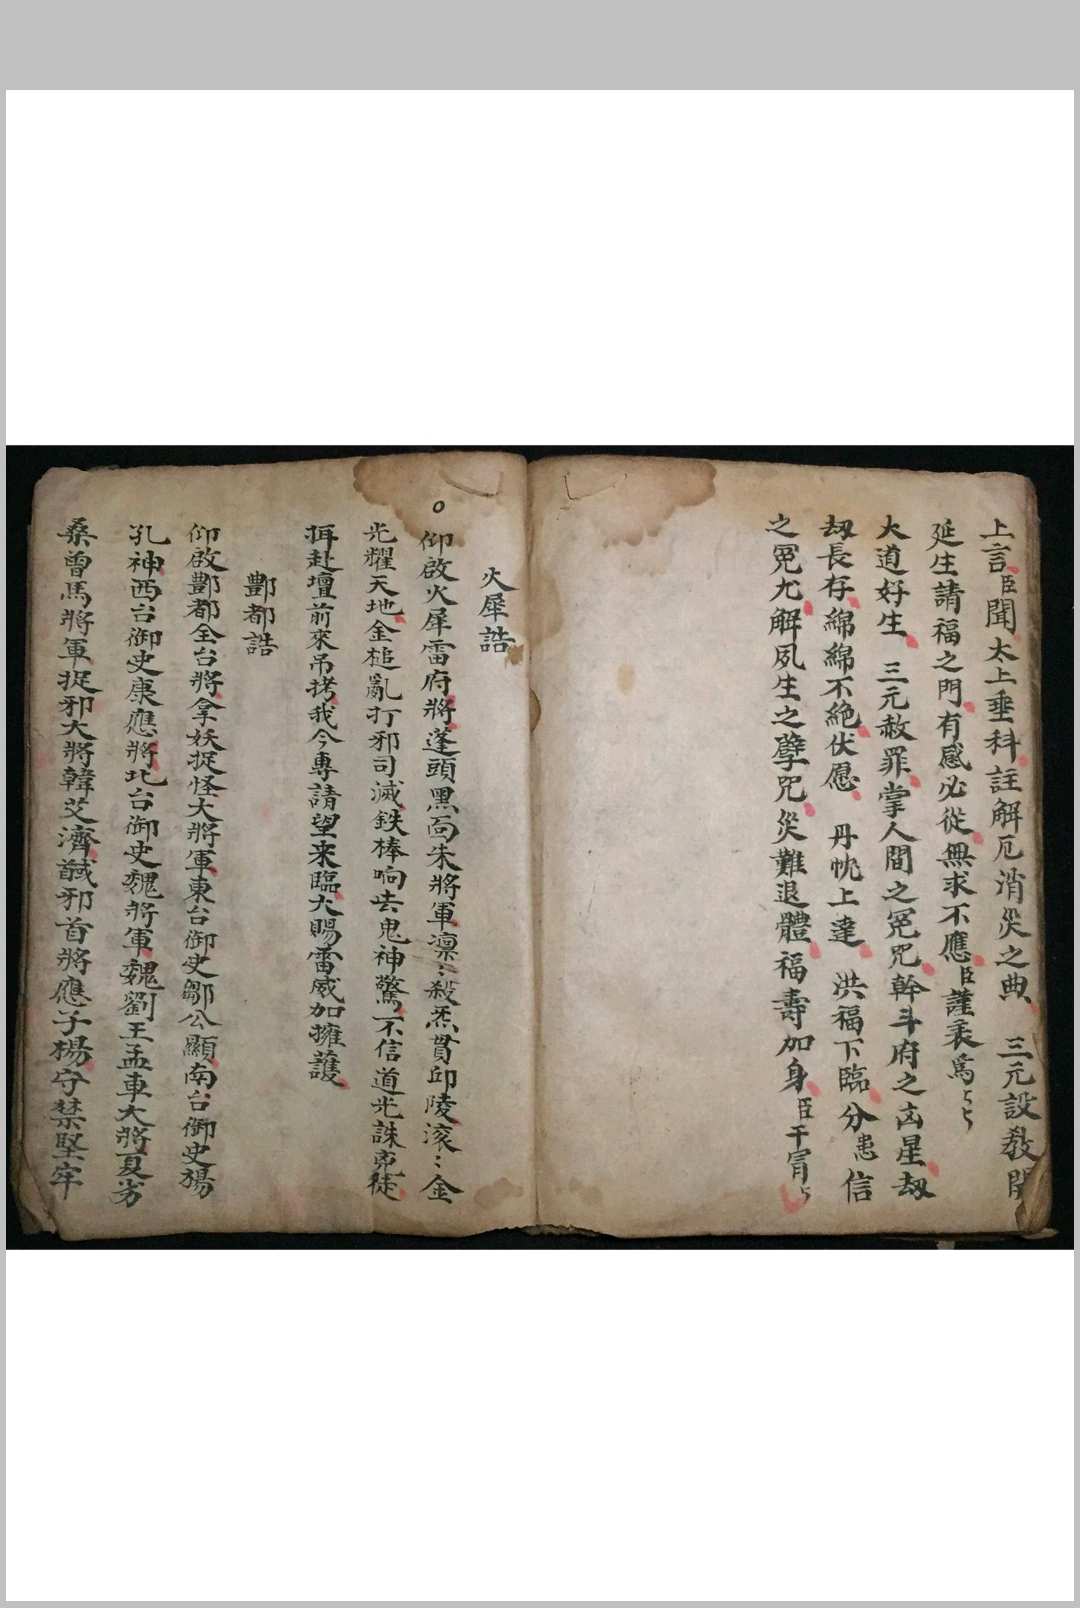 上言臣聞太上垂科註解厄消災之典 三元設教開
延生請福之門有感必從無求不應臣謹奏為
大道好生 三元赦罪掌人間之冤咒斡斗府之凶星劫
劫長存綿綿不絶伏愿 丹忱上達 洪福下臨分患信
之冤尤解夙生之孽咒災難退體福壽加身臣干冒
火犀誥
仰啟火犀雷府將蓬頭黑面朱將軍凛:殺炁貫邱陵滾:金
光耀天地金槌亂打邪司滅鉄棒响去鬼神驚不信道光誅兇徒
再赴壇前來吊拷我今專請望来臨大賜雷威加擁護
酆都誥
仰啟酆都全台將拿妖捉怪大將軍東台御史鄒公顯南台御史楊
孔神西台御史康應將北台御史魏將軍魏劉王孟車大將夏劣
桑曾馬將軍捉邪大將韓艾濟馘邪首將應子楊守禁堅牢